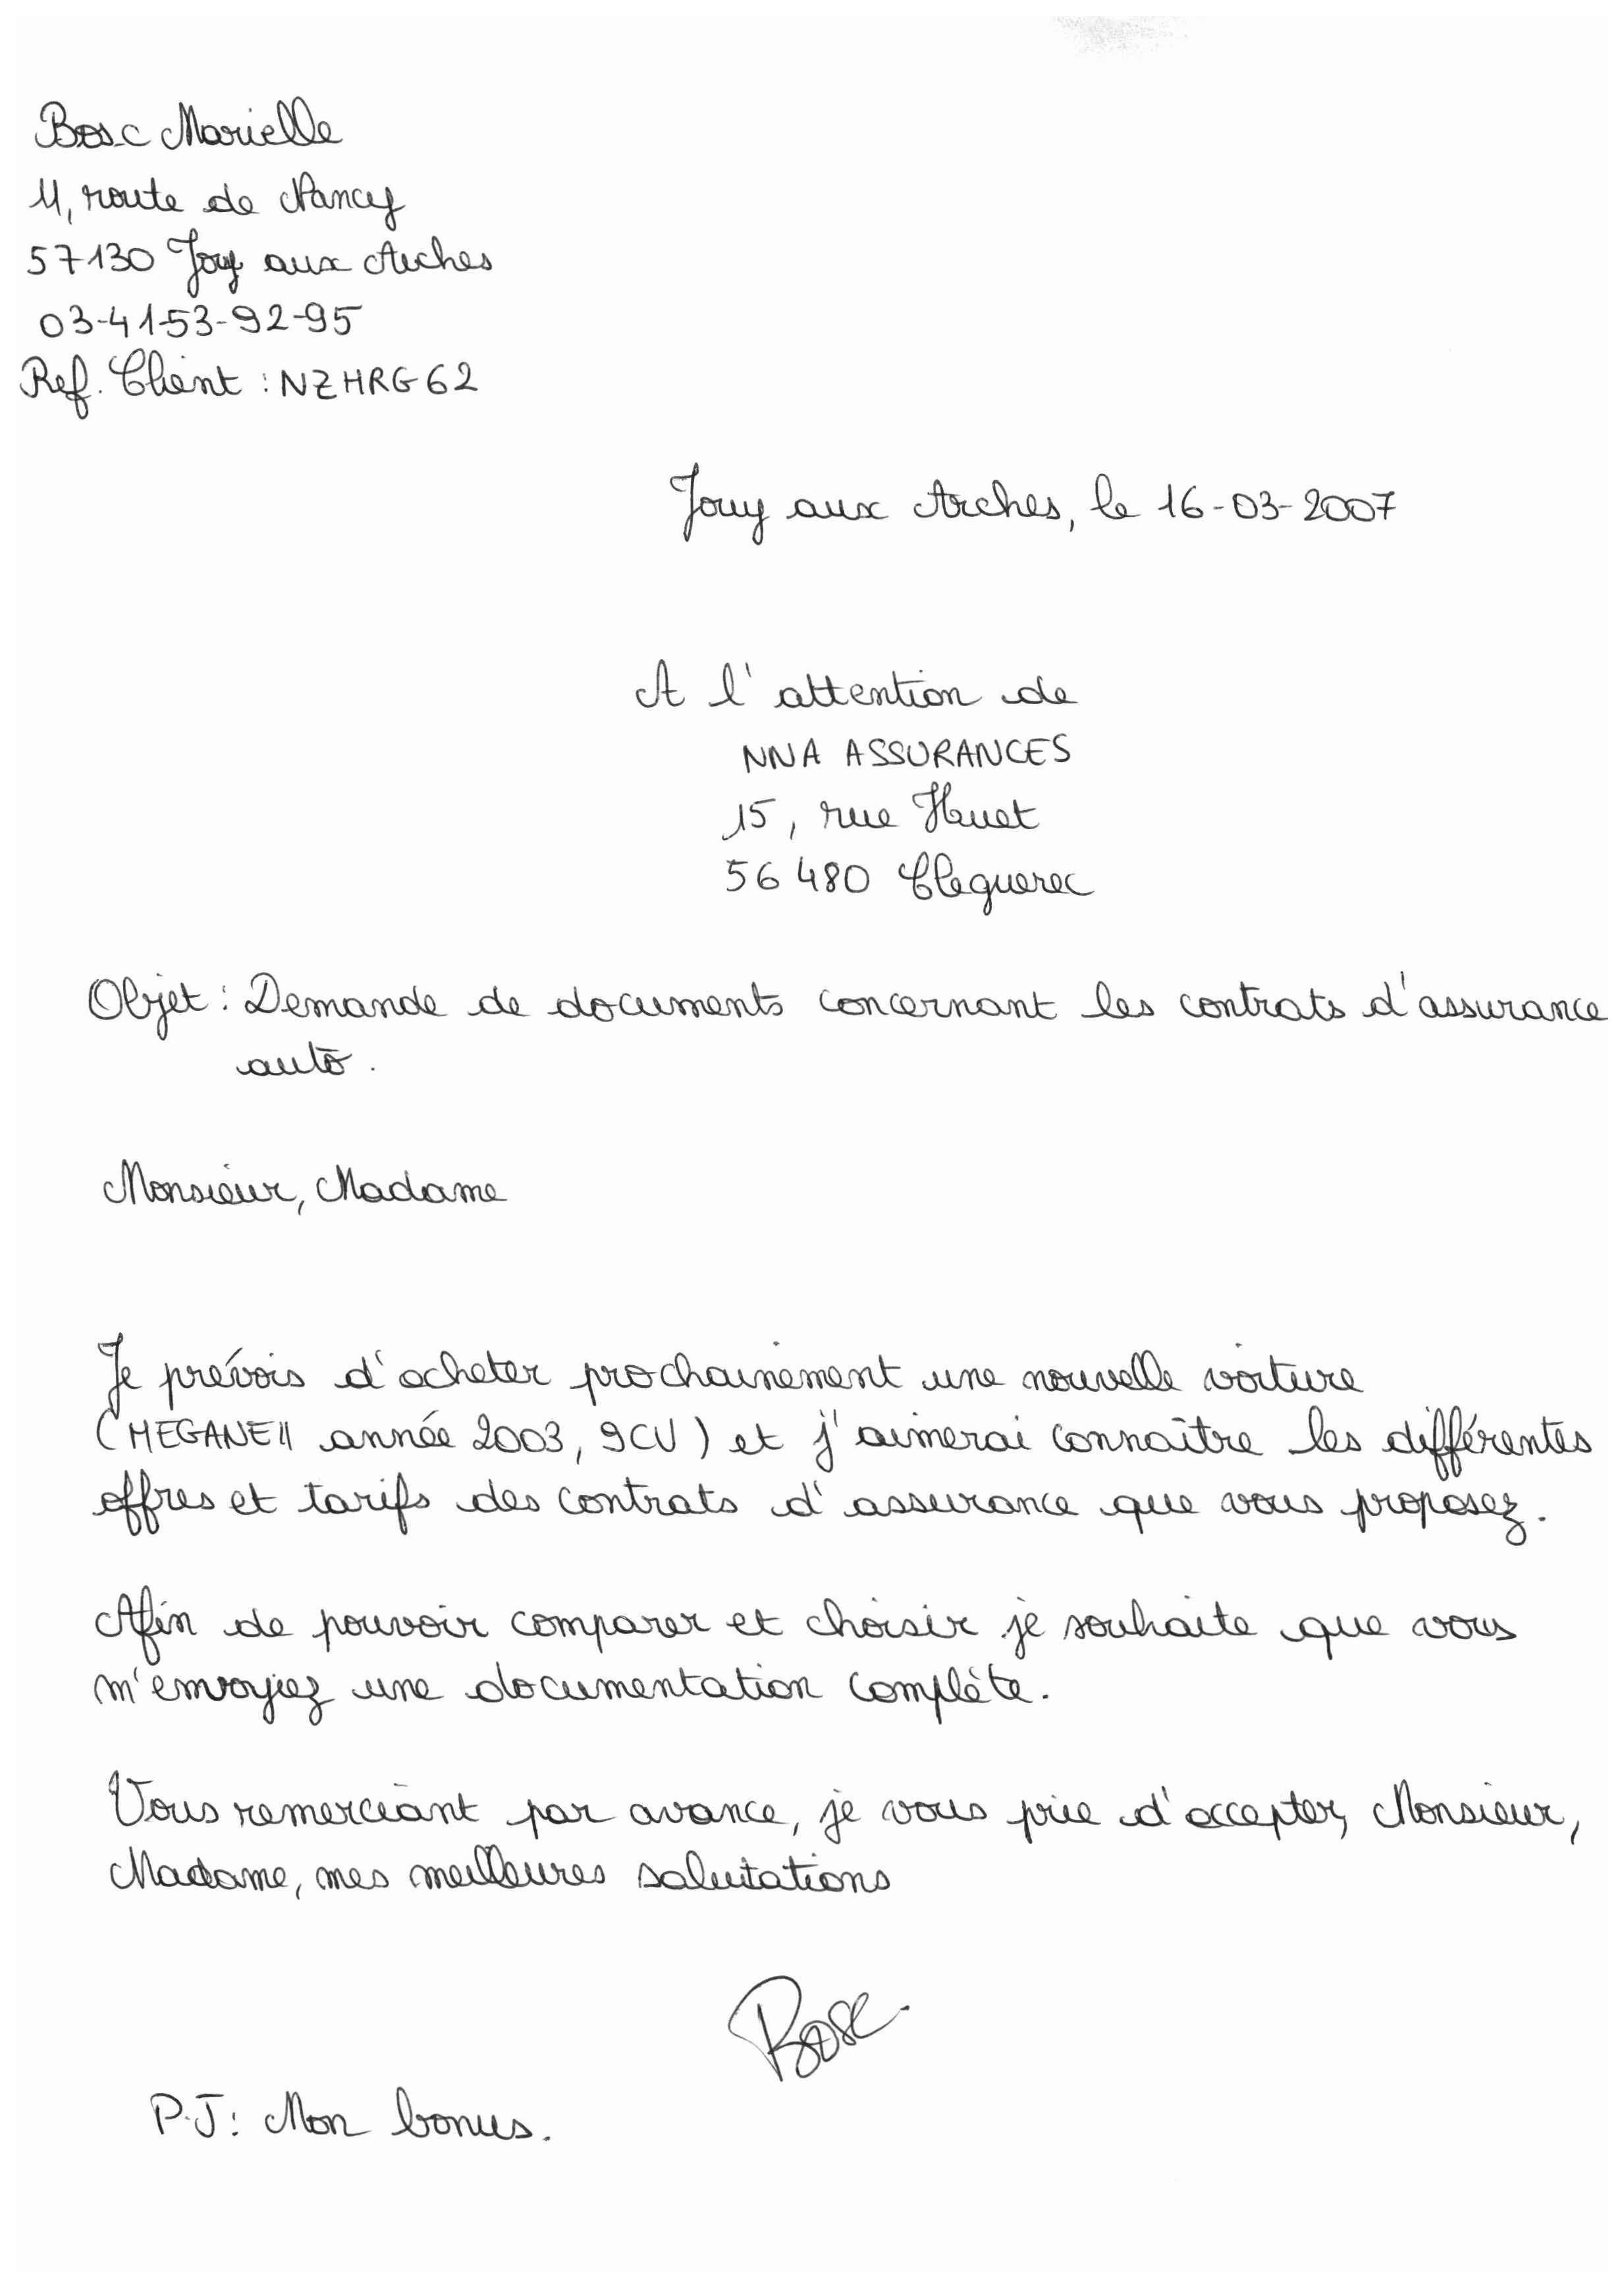 Bosc Marielle
11, route de Nancy
57130 Jouy aux Arches
03-41-53-92-95
Ref. Client : NZHRG62
Jouy aux Arches, le 16-03-2007
A l'attention de
NNA ASSURANCES
15, rue Huet
56480 Cleguerec
Objet : Demande de documents concernant les contrats d'assurance
auto.
Monsieur, Madame
Je prévois d'acheter prochainement une nouvelle voiture
(MEGANE II année 2003, 9CV) et j'aimerai connaître les différentes
offres et tarifs des contrats d'assurance que vous proposez.
Afin de pouvoir comparer et choisir je souhaite que vous
m'envoyiez une documentation complète.
Vous remerciant par avance, je vous prie d'accepter, Monsieur,
Madame, mes meilleures salutations
Bosc
P.J : Mon bonus.